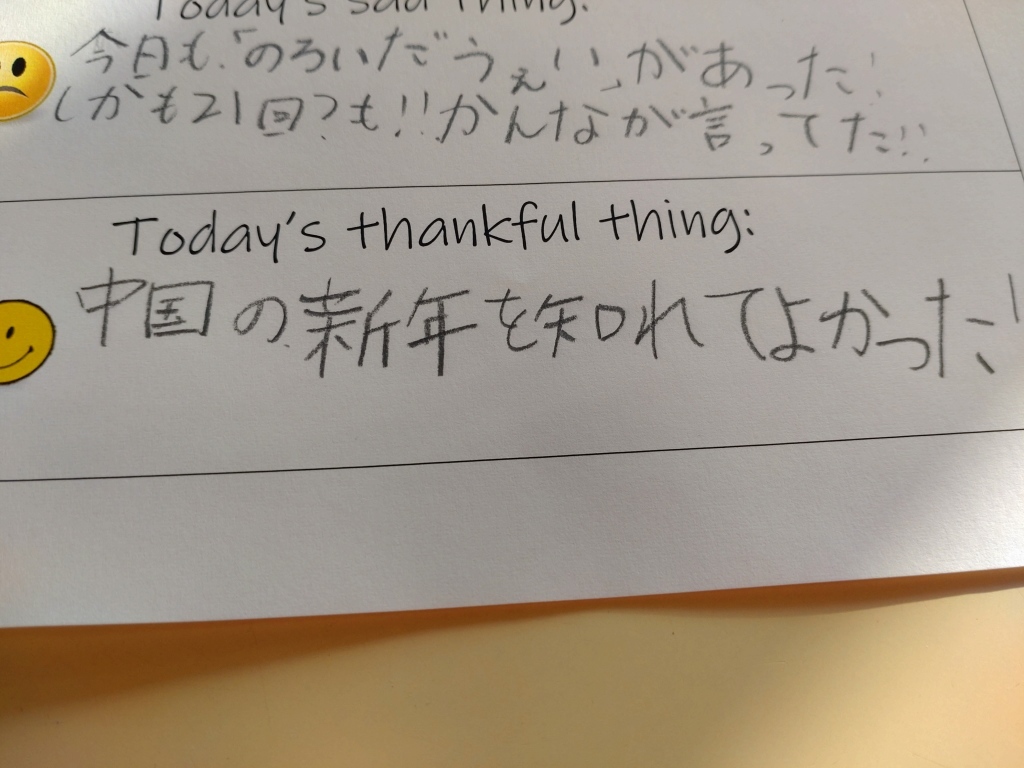 Today's sad thing:
今日も、「のろいだうぇい」があった!
しかも21回?も!!かんなが言ってた!!
Today's thankful thing:
中国の新年を知れてよかった!